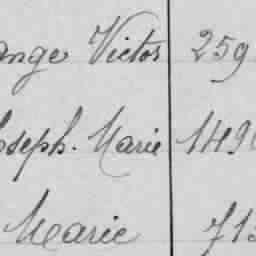 ange Victor 259
Joseph. Marie 149
Marie 71